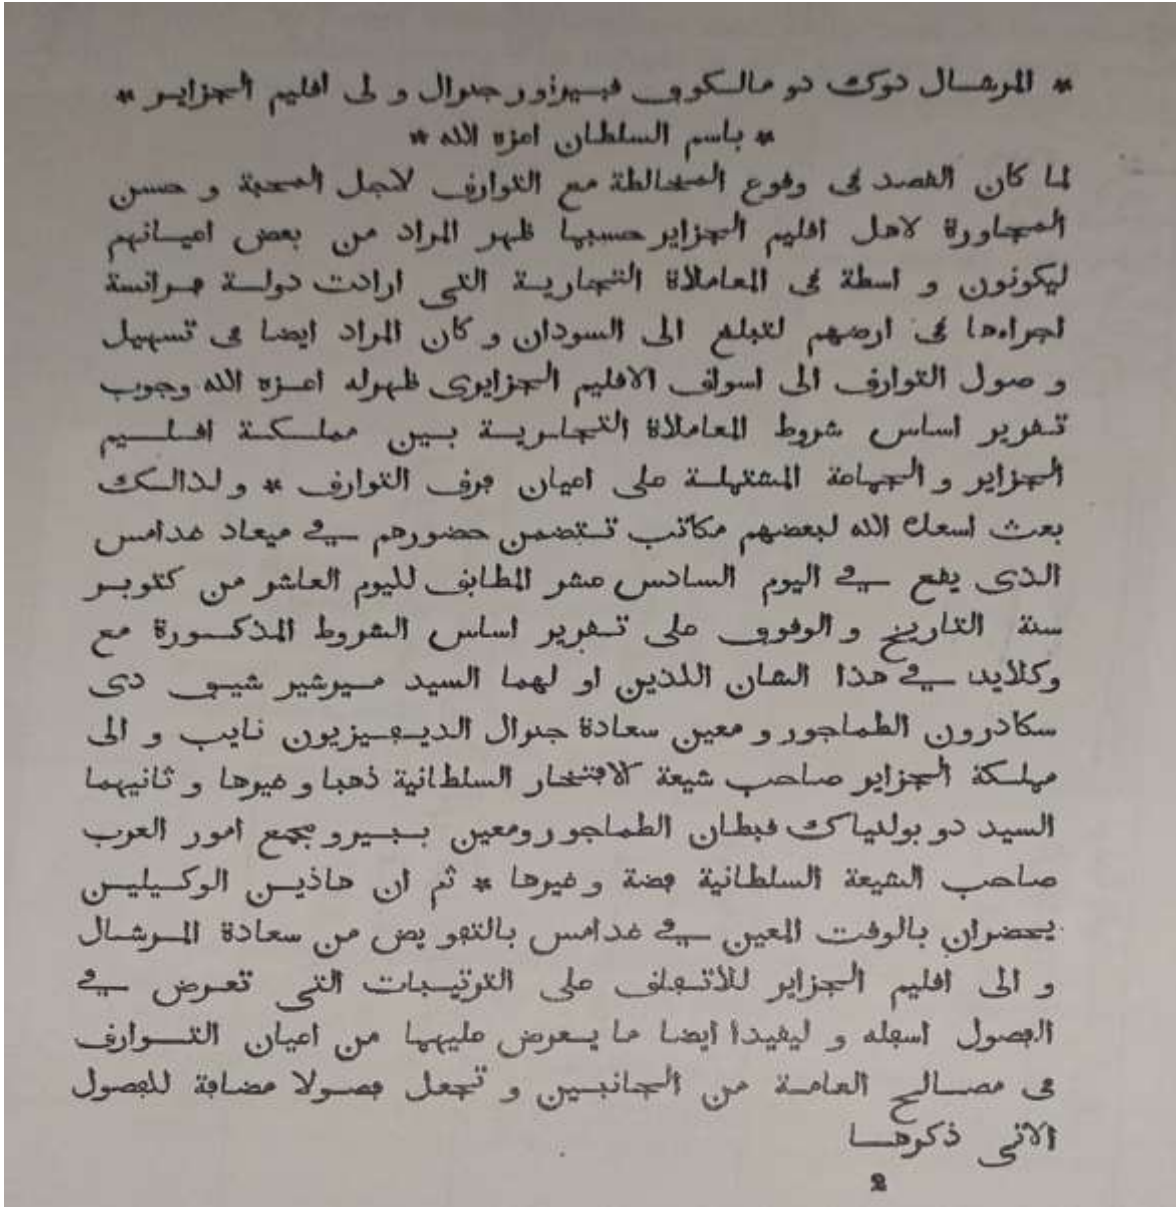 * المرشال دوك دو مالكوف فبيرنور جنرال و لى افليم الجزاير *
* باسم السلطان اعزه الله *
لما كان الفصد فى وفوع المخالطة مع التوارف لاجل المحبة و حسن
المجاورة لاهل افليم الجزاير حسبما ظهر المراد من بعض اعيانهم
ليكونون و اسطة فى المعاملاة التجارية التى ارادت دولة فرانسة
اجراءها فى ارضهم لتبلغ الى السودان و كان المراد ايضا فى تسهيل
و صول التوارف الى اسواف الافليم الجزايرى ظهرله اعزه الله وجوب
تفرير اساس شروط المعاملاة التجارية بين مملكة افليم
الجزاير و الجماعة المشتملة على اعيان فرف التوارف * و لذالك
بعث اسعك الله لبعضهم مكاتب تتضمن حضورهم في ميعاد غدامس
الذى يفع في اليوم السادس عشر المطابف لليوم العاشر من كتوبر
سنة التاريخ و الوفوف على تفرير اساس الشروط المذكورة مع
وكلايه في هذا الشان اللذين او لهما السيد ميرشير شيف دى
سكادرون الطماجور و معين سعادة جنرال الديفيزيون نايب و الى
مملكة الجزاير صاحب شيعة الافتخار السلطانية ذهبا و غيرها و ثانيهما
السيد دو بولنياك فبطان الطماجور ومعين ببيرو مجمع امور العرب
صاحب الشيعة السلطانية فضة و غيرها * ثم ان هاذين الوكيلين
يحضران بالوفت المعين في غدامس بالتفو يض من سعادة المرشال
و الى افليم الجزاير للاتفاف على الترتيبات التى تعرض في
الفصول اسفله و ليفيدا ايضا ما يعرض عليهما من اعيان التوارف
فى مصالح العامة من الجانبين و تجعل فصولا مضافة للفصول
الاتى ذكرها
2